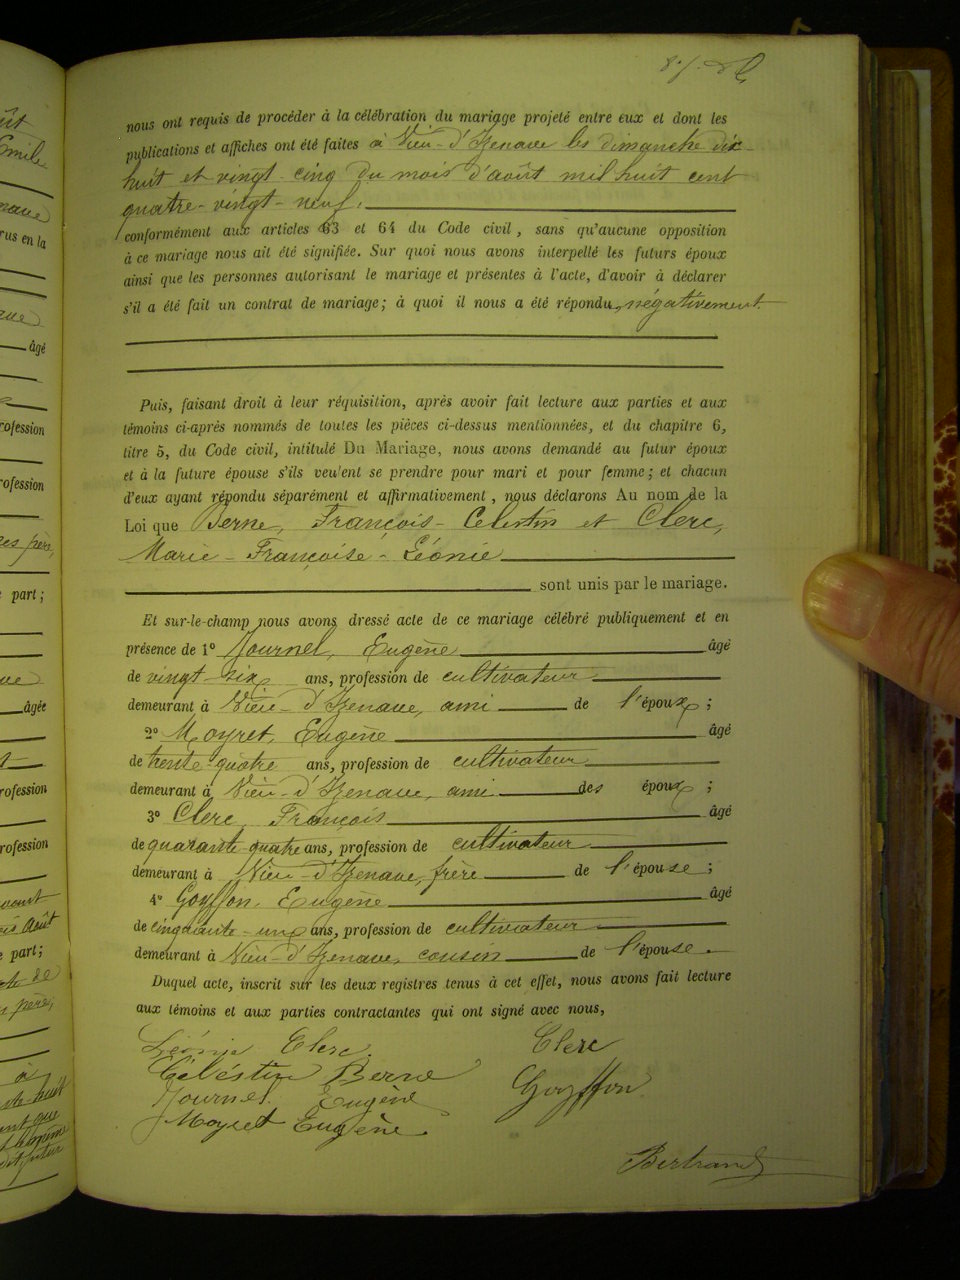 nous ont requis de procéder à la célébration du mariage projeté entre eux et dont les
publications et affiches ont été faites à Vieu-d'Izenave les dimanche dix-
huit et vingt-cinq du mois d'août mil huit cent
quatre-vingt-neuf.
conformément aux articles 63 et 64 du Code civil, sans qu'aucune opposition
à ce mariage nous ait été signifiée. Sur quoi nous avons interpellé les futurs époux
ainsi que les personnes autorisant le mariage et présentes à l'acte, d'avoir à déclarer
s'il a été fait un contrat de mariage; à quoi il nous a été répondu négativement
Puis, faisant droit à leur réquisition, après avoir fait lecture aux parties et aux
témoins ci-après nommés de toutes les pièces ci-dessus mentionnées, et du chapitre 6,
titre 5, du Code civil, intitulé Du Mariage, nous avons demandé au futur époux
et à la future épouse s'ils veulent se prendre pour mari et pour femme; et chacun
d'eux ayant répondu séparément et affirmativement, nous déclarons Au nom de la
Loi que Berne, François-Célestin et Clerc,
Marie-Françoise-Léonie
sont unis par le mariage.
Et sur-le-champ nous avons dressé acte de ce mariage célébré publiquement et en
présence de 1° Journel, Eugène âgé
de vingt-six ans, profession de cultivateur
demeurant à Vieu-d'Izenave, ami de l'époux;
2° Moyret, Eugène âgé
de trente-quatre ans, profession de cultivateur
demeurant à Vieu-d'Izenave, ami des époux;
3° Clerc, François âgé
de quarante-quatre ans, profession de cultivateur
demeurant à Vieu-d'Izenave, frère de l'épouse;
4° Goyffon, Eugène âgé
de cinquante-un ans, profession de cultivateur
demeurant à Vieu-d'Izenave, cousin de l'épouse.
Duquel acte, inscrit sur les deux registres tenus à cet effet, nous avons fait lecture
aux témoins et aux parties contractantes qui ont signé avec nous,
Léonie Clerc Clerc
Célèstin Berne Goyffon
Journel Eugène
Moyret Eugène
Bertrand